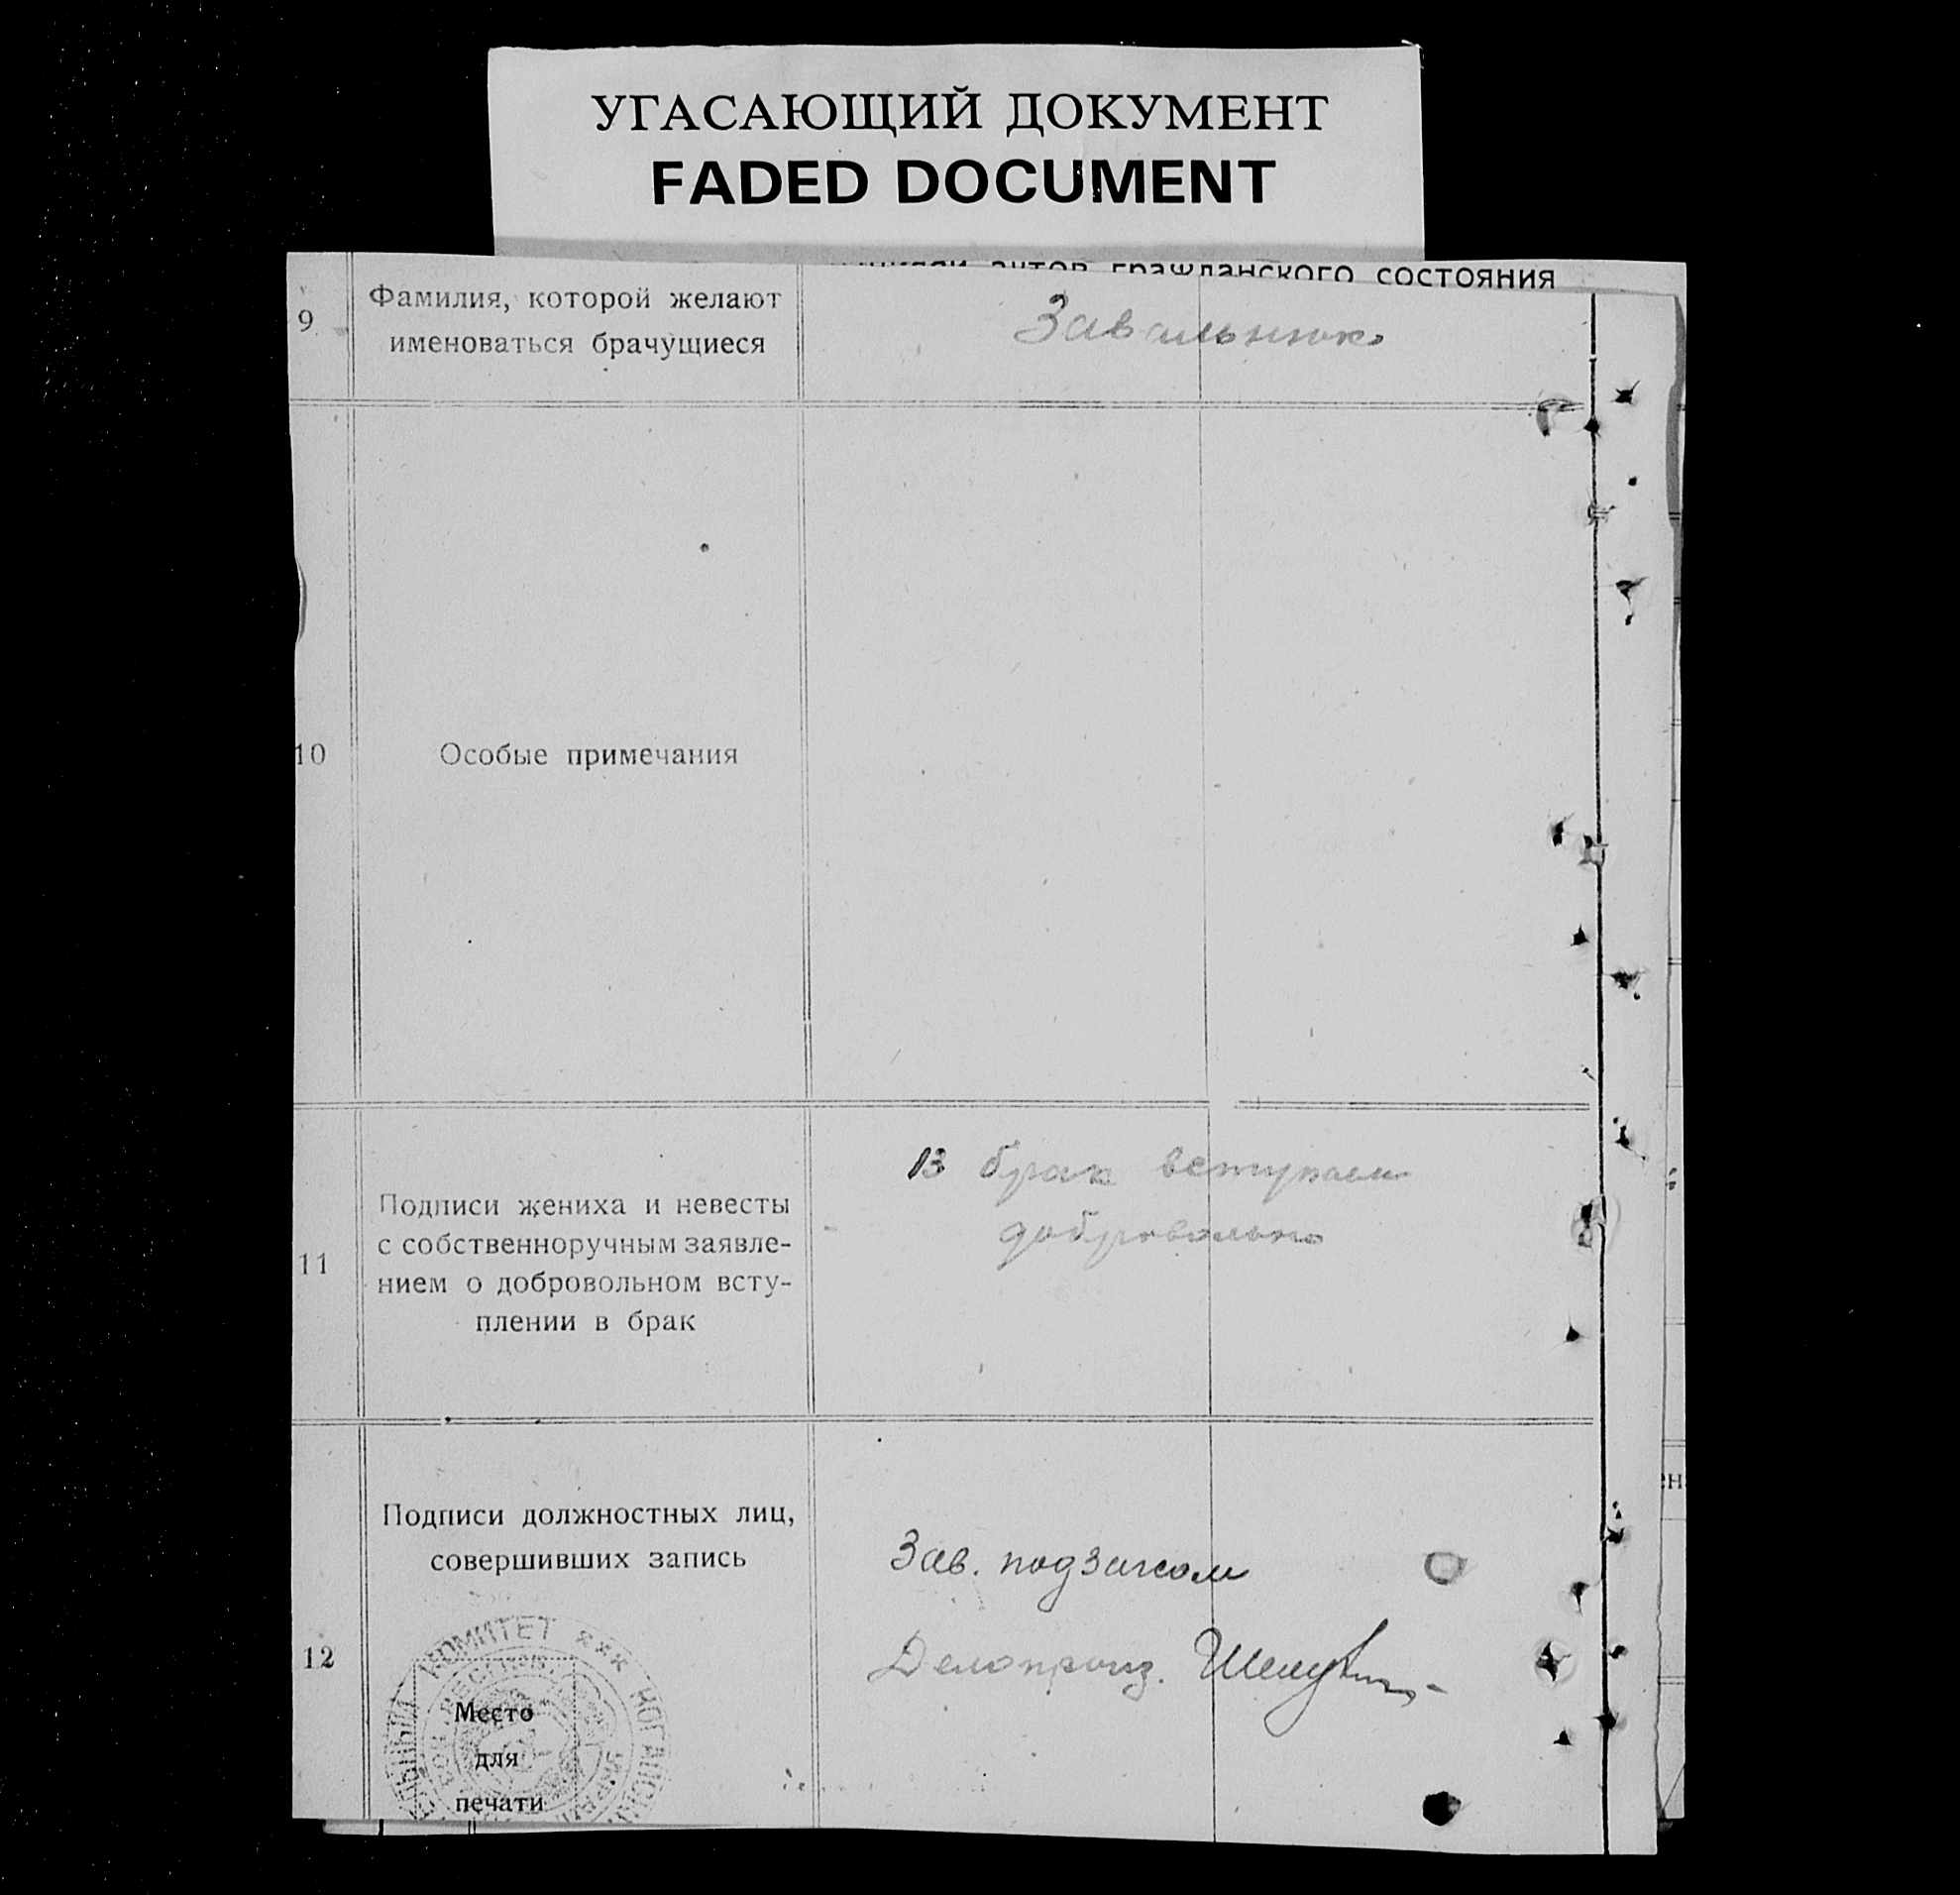 УГАСАЮЩИЙ ДОКУМЕНТ
FADED DOCUMENT
актов гражданского состояния
9
Фамилия, которой желают
именоваться брачущиеся
Завальнюк
10
Особые примечания
11
Подписи жениха и невесты
с собственноручным заявле-
нием о добровольном всту-
плении в брак
В брак вступаем
добровольно
12
Подписи должностных лиц,
совершивших запись
Зав. подзагсом
Делопроиз.
КОМИТЕТ
Место
для
печати